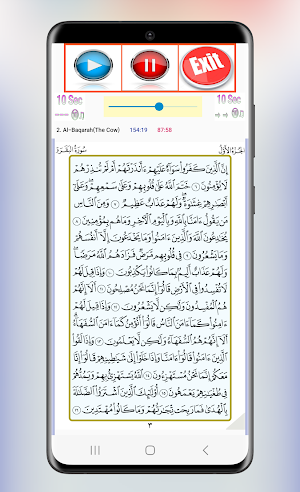 Exit
10 Sec 10 Sec
2. Al-Baqarah(The Cow) 154:19 87:58
سُورَةُ البَقَرَة الجزء الأول
إِنَّ ٱلَّذِينَ كَفَرُوا۟ سَوَآءٌ عَلَيْهِمْ ءَأَنذَرْتَهُمْ أَمْ لَمْ تُنذِرْهُمْ
لَا يُؤْمِنُونَ ٦ خَتَمَ ٱللَّهُ عَلَىٰ قُلُوبِهِمْ وَعَلَىٰ سَمْعِهِمْ وَعَلَىٰٓ
أَبْصَٰرِهِمْ غِشَٰوَةٌ وَلَهُمْ عَذَابٌ عَظِيمٌ ٧ وَمِنَ ٱلنَّاسِ
مَن يَقُولُ ءَامَنَّا بِٱللَّهِ وَبِٱلْيَوْمِ ٱلْءَاخِرِ وَمَا هُم بِمُؤْمِنِينَ ٨
يُخَٰدِعُونَ ٱللَّهَ وَٱلَّذِينَ ءَامَنُوا۟ وَمَا يَخْدَعُونَ إِلَّآ أَنفُسَهُمْ
وَمَا يَشْعُرُونَ ٩ فِى قُلُوبِهِم مَّرَضٌ فَزَادَهُمُ ٱللَّهُ مَرَضًا
وَلَهُمْ عَذَابٌ أَلِيمٌۢ بِمَا كَانُوا۟ يَكْذِبُونَ ١٠ وَإِذَا قِيلَ لَهُمْ
لَا تُفْسِدُوا۟ فِى ٱلْأَرْضِ قَالُوٓا۟ إِنَّمَا نَحْنُ مُصْلِحُونَ ١١ أَلَآ إِنَّهُمْ
هُمُ ٱلْمُفْسِدُونَ وَلَٰكِن لَّا يَشْعُرُونَ ١٢ وَإِذَا قِيلَ لَهُمْ
ءَامِنُوا۟ كَمَآ ءَامَنَ ٱلنَّاسُ قَالُوٓا۟ أَنُؤْمِنُ كَمَآ ءَامَنَ ٱلسُّفَهَآءُ
أَلَآ إِنَّهُمْ هُمُ ٱلسُّفَهَآءُ وَلَٰكِن لَّا يَعْلَمُونَ ١٣ وَإِذَا لَقُوا۟
ٱلَّذِينَ ءَامَنُوا۟ قَالُوٓا۟ ءَامَنَّا وَإِذَا خَلَوْا۟ إِلَىٰ شَيَٰطِينِهِمْ قَالُوٓا۟ إِنَّا
مَعَكُمْ إِنَّمَا نَحْنُ مُسْتَهْزِءُونَ ١٤ ٱللَّهُ يَسْتَهْزِئُ بِهِمْ وَيَمُدُّهُمْ
فِى طُغْيَٰنِهِمْ يَعْمَهُونَ ١٥ أُو۟لَٰٓئِكَ ٱلَّذِينَ ٱشْتَرَوُا۟ ٱلضَّلَٰلَةَ
بِٱلْهُدَىٰ فَمَا رَبِحَت تِّجَٰرَتُهُمْ وَمَا كَانُوا۟ مُهْتَدِينَ ١٦
٣